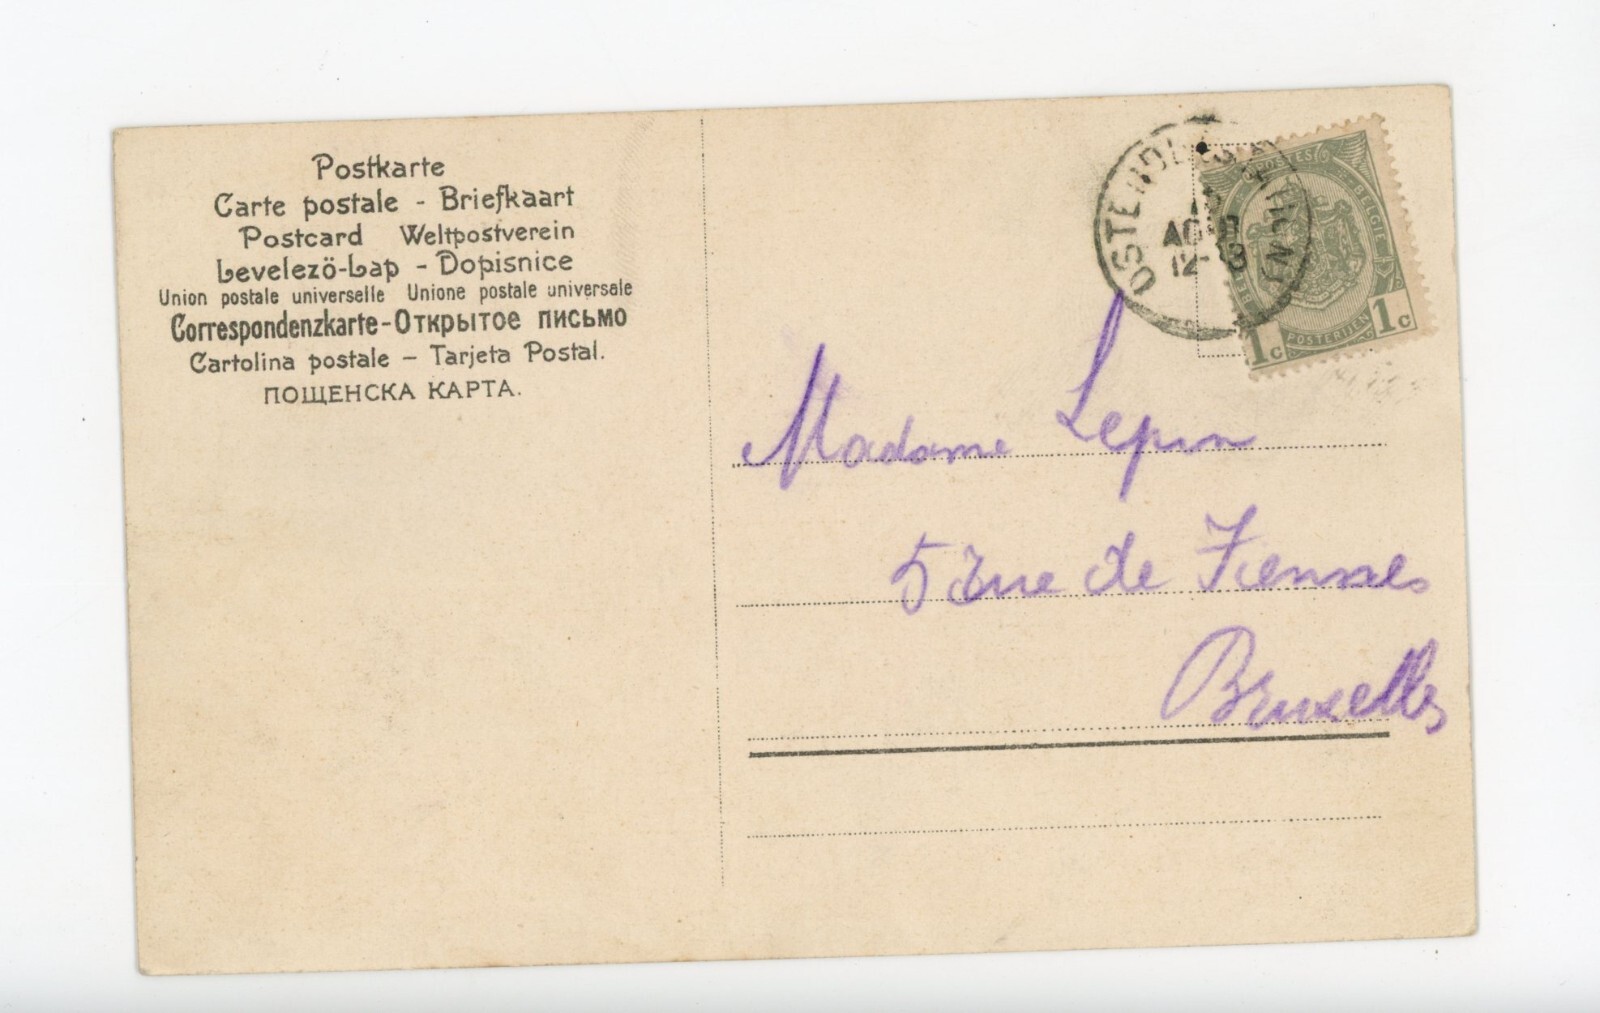 Postkarte
Carte postale - Briefkaart
Postcard Weltpostverein
Levelezö-Lap - Dopisnice
Union postale universelle Unione postale universale
Correspondenzkarte-Открытое письмо
Cartolina postale - Tarjeta Postal.
ПОЩЕНСКА КАРТА.
OSTENDE
12-13
POSTES
BELGIE
POSTERIJEN
1c 1c
Madame Lepin
5 rue de Fiennes
Bruxelles